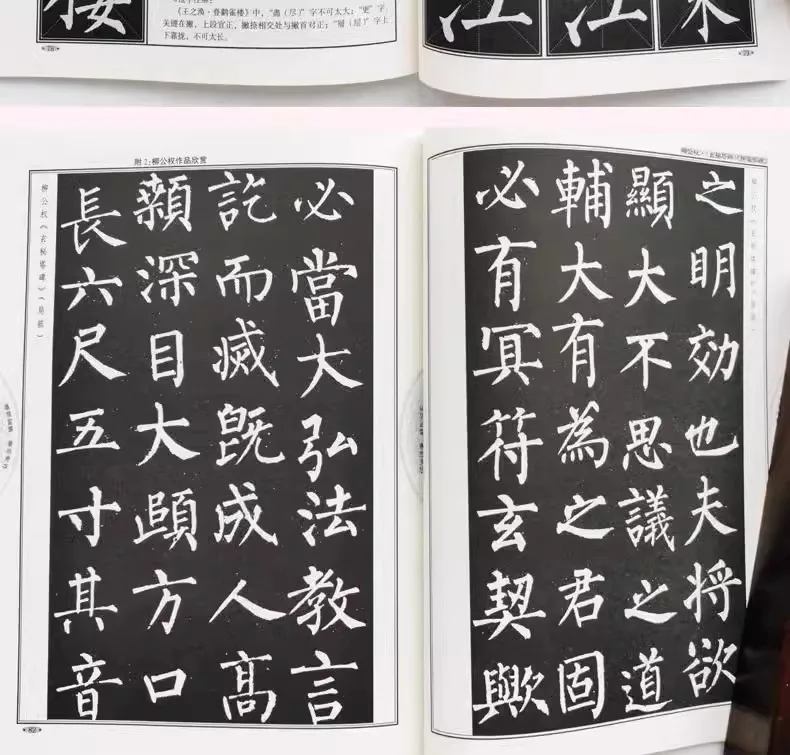 《王之涣·登鹳雀楼》中,“盡(尽)”字不可太大;“更”字
关键在撇,上段宜正,撇捺相交处与撇首对正;“層(层)”字上
下靠拢,不可太长。
江
江
附2:柳公权作品欣赏
柳公权《玄秘塔碑》(局部)
必當大弘法教言
訖而滅既成人高
顙深目大頤方口
長六尺五寸其音
82
之明効也夫将欲
顯大不思議之道
輔大有為之君固
必有冥符玄契歟